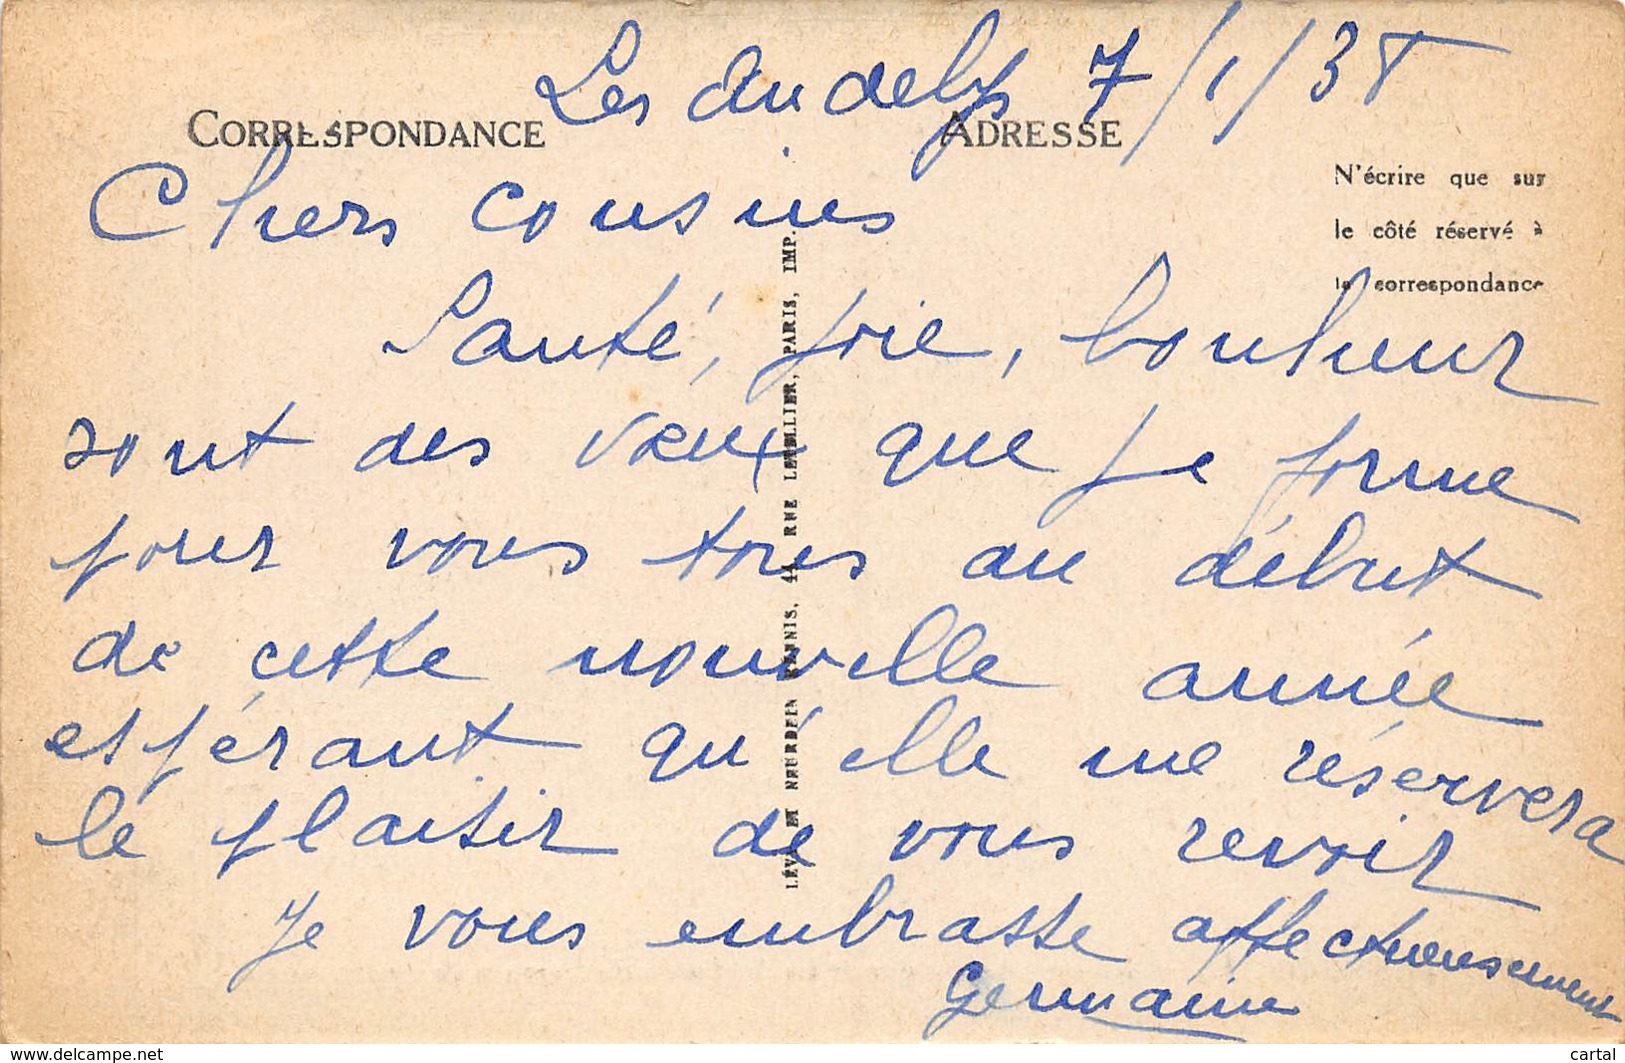 Les Andelys 7/1/35
CORRESPONDANCE
ADRESSE
N'écrire que sur
le côté réservé à
la correspondance
Chers cousins
Santé, joie, bonheur
sont des vœux que je forme
pour vous tous au début
de cette nouvelle année
espérant qu'elle me réservera
le plaisir de vous revoir
Je vous embrasse affectueusement
Germaine
LÉVY ET NEURDEIN RÉUNIS, 44, RUE LETELLIER, PARIS, IMP.
www.delcampe.net
cartal